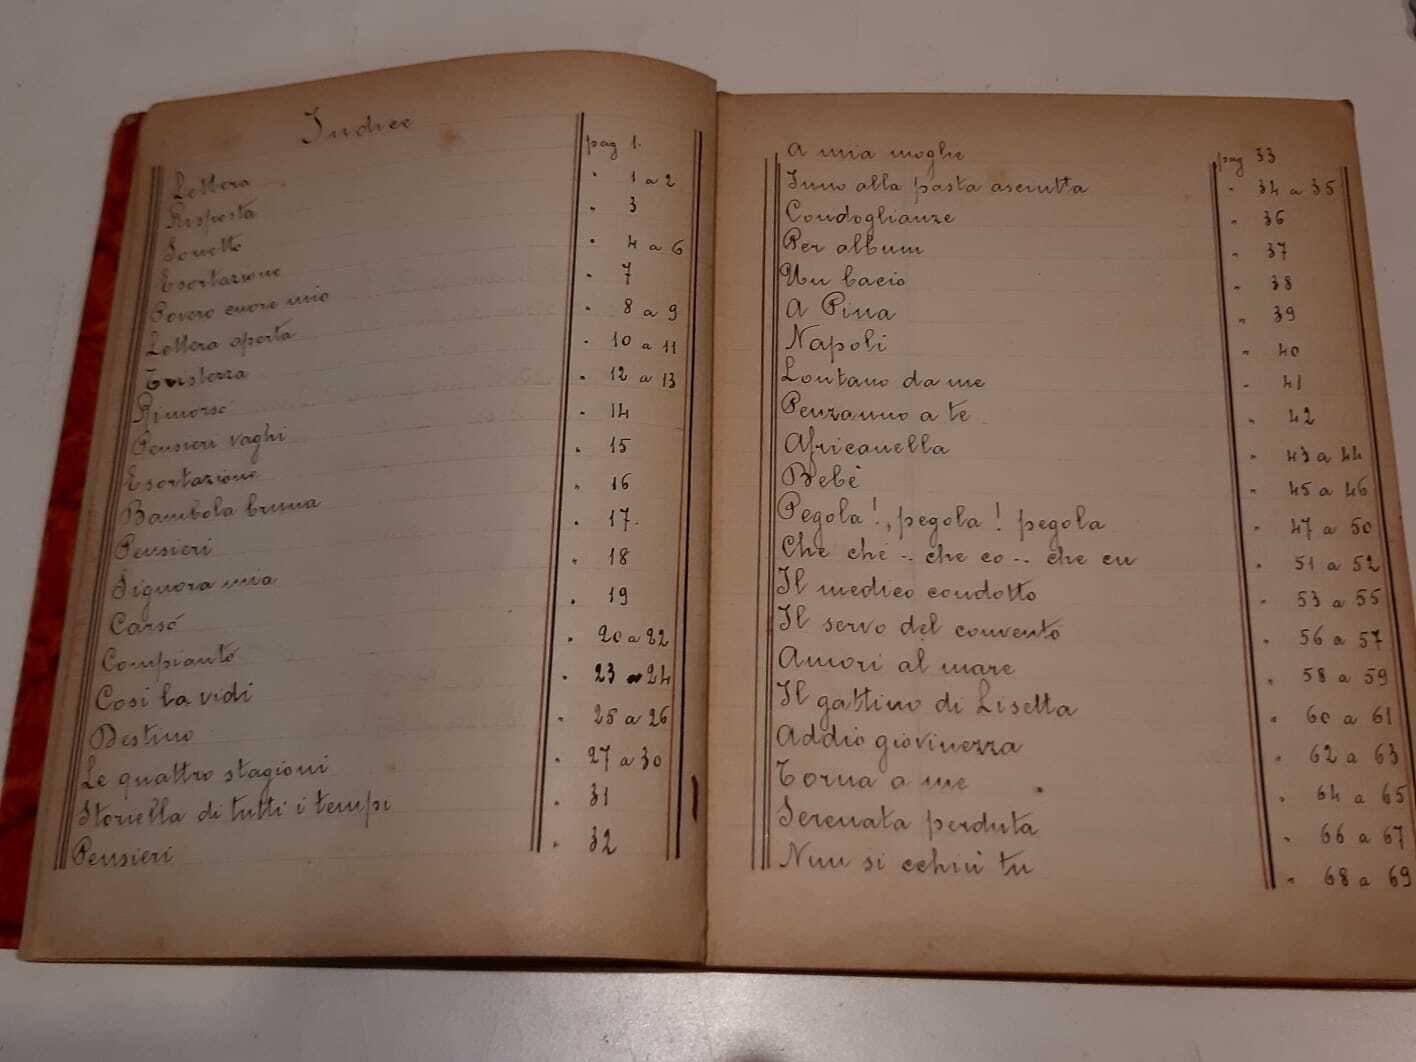 Indice
Lettera pag 1.
Risposta " 1 a 2
Sonetto " 3
Esortazione " 4 a 6
Povero cuore mio " 7
Lettera aperta " 8 a 9
Tristezza " 10 a 11
Rimorso " 12 a 13
Pensieri vaghi " 14
Esortazione " 15
Bambola bruna " 16
Pensieri " 17.
Signora mia " 18
Carso " 19
Compianto " 20 a 22
Così la vidi " 23 a 24
Destino " 25 a 26
Le quattro stagioni " 27 a 30
Storiella di tutti i tempi " 31
Pensieri " 32
A mia moglie pag 33
Inno alla pasta asciutta " 34 a 35
Condoglianze " 36
Per album " 37
Un bacio " 38
A Pina " 39
Napoli " 40
Lontano da me " 41
Penzanno a te " 42
Africanella " 43 a 44
Bebè " 45 a 46
Pegola!, pegola! pegola " 47 a 50
Che chi .. che co .. che cu " 51 a 52
Il medico condotto " 53 a 55
Il servo del convento " 56 a 57
Amori al mare " 58 a 59
Il gattino di Lisetta " 60 a 61
Addio giovinezza " 62 a 63
Torna a me " 64 a 65
Serenata perduta " 66 a 67
Nun si cchiù tu " 68 a 69